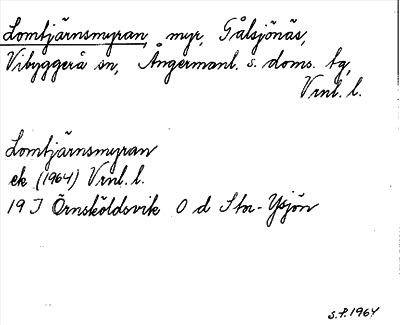 Lomtjärnsmyran, myr, Gålsjönäs,
Vibyggerå sn, Ångermanl. s. doms. tg,
Vrnl. l.
Lomtjärnsmyran
ek (1964) Vrnl. l.
19 I Örnsköldsvik 0 d Stor-Ysjön
S.F. 1964